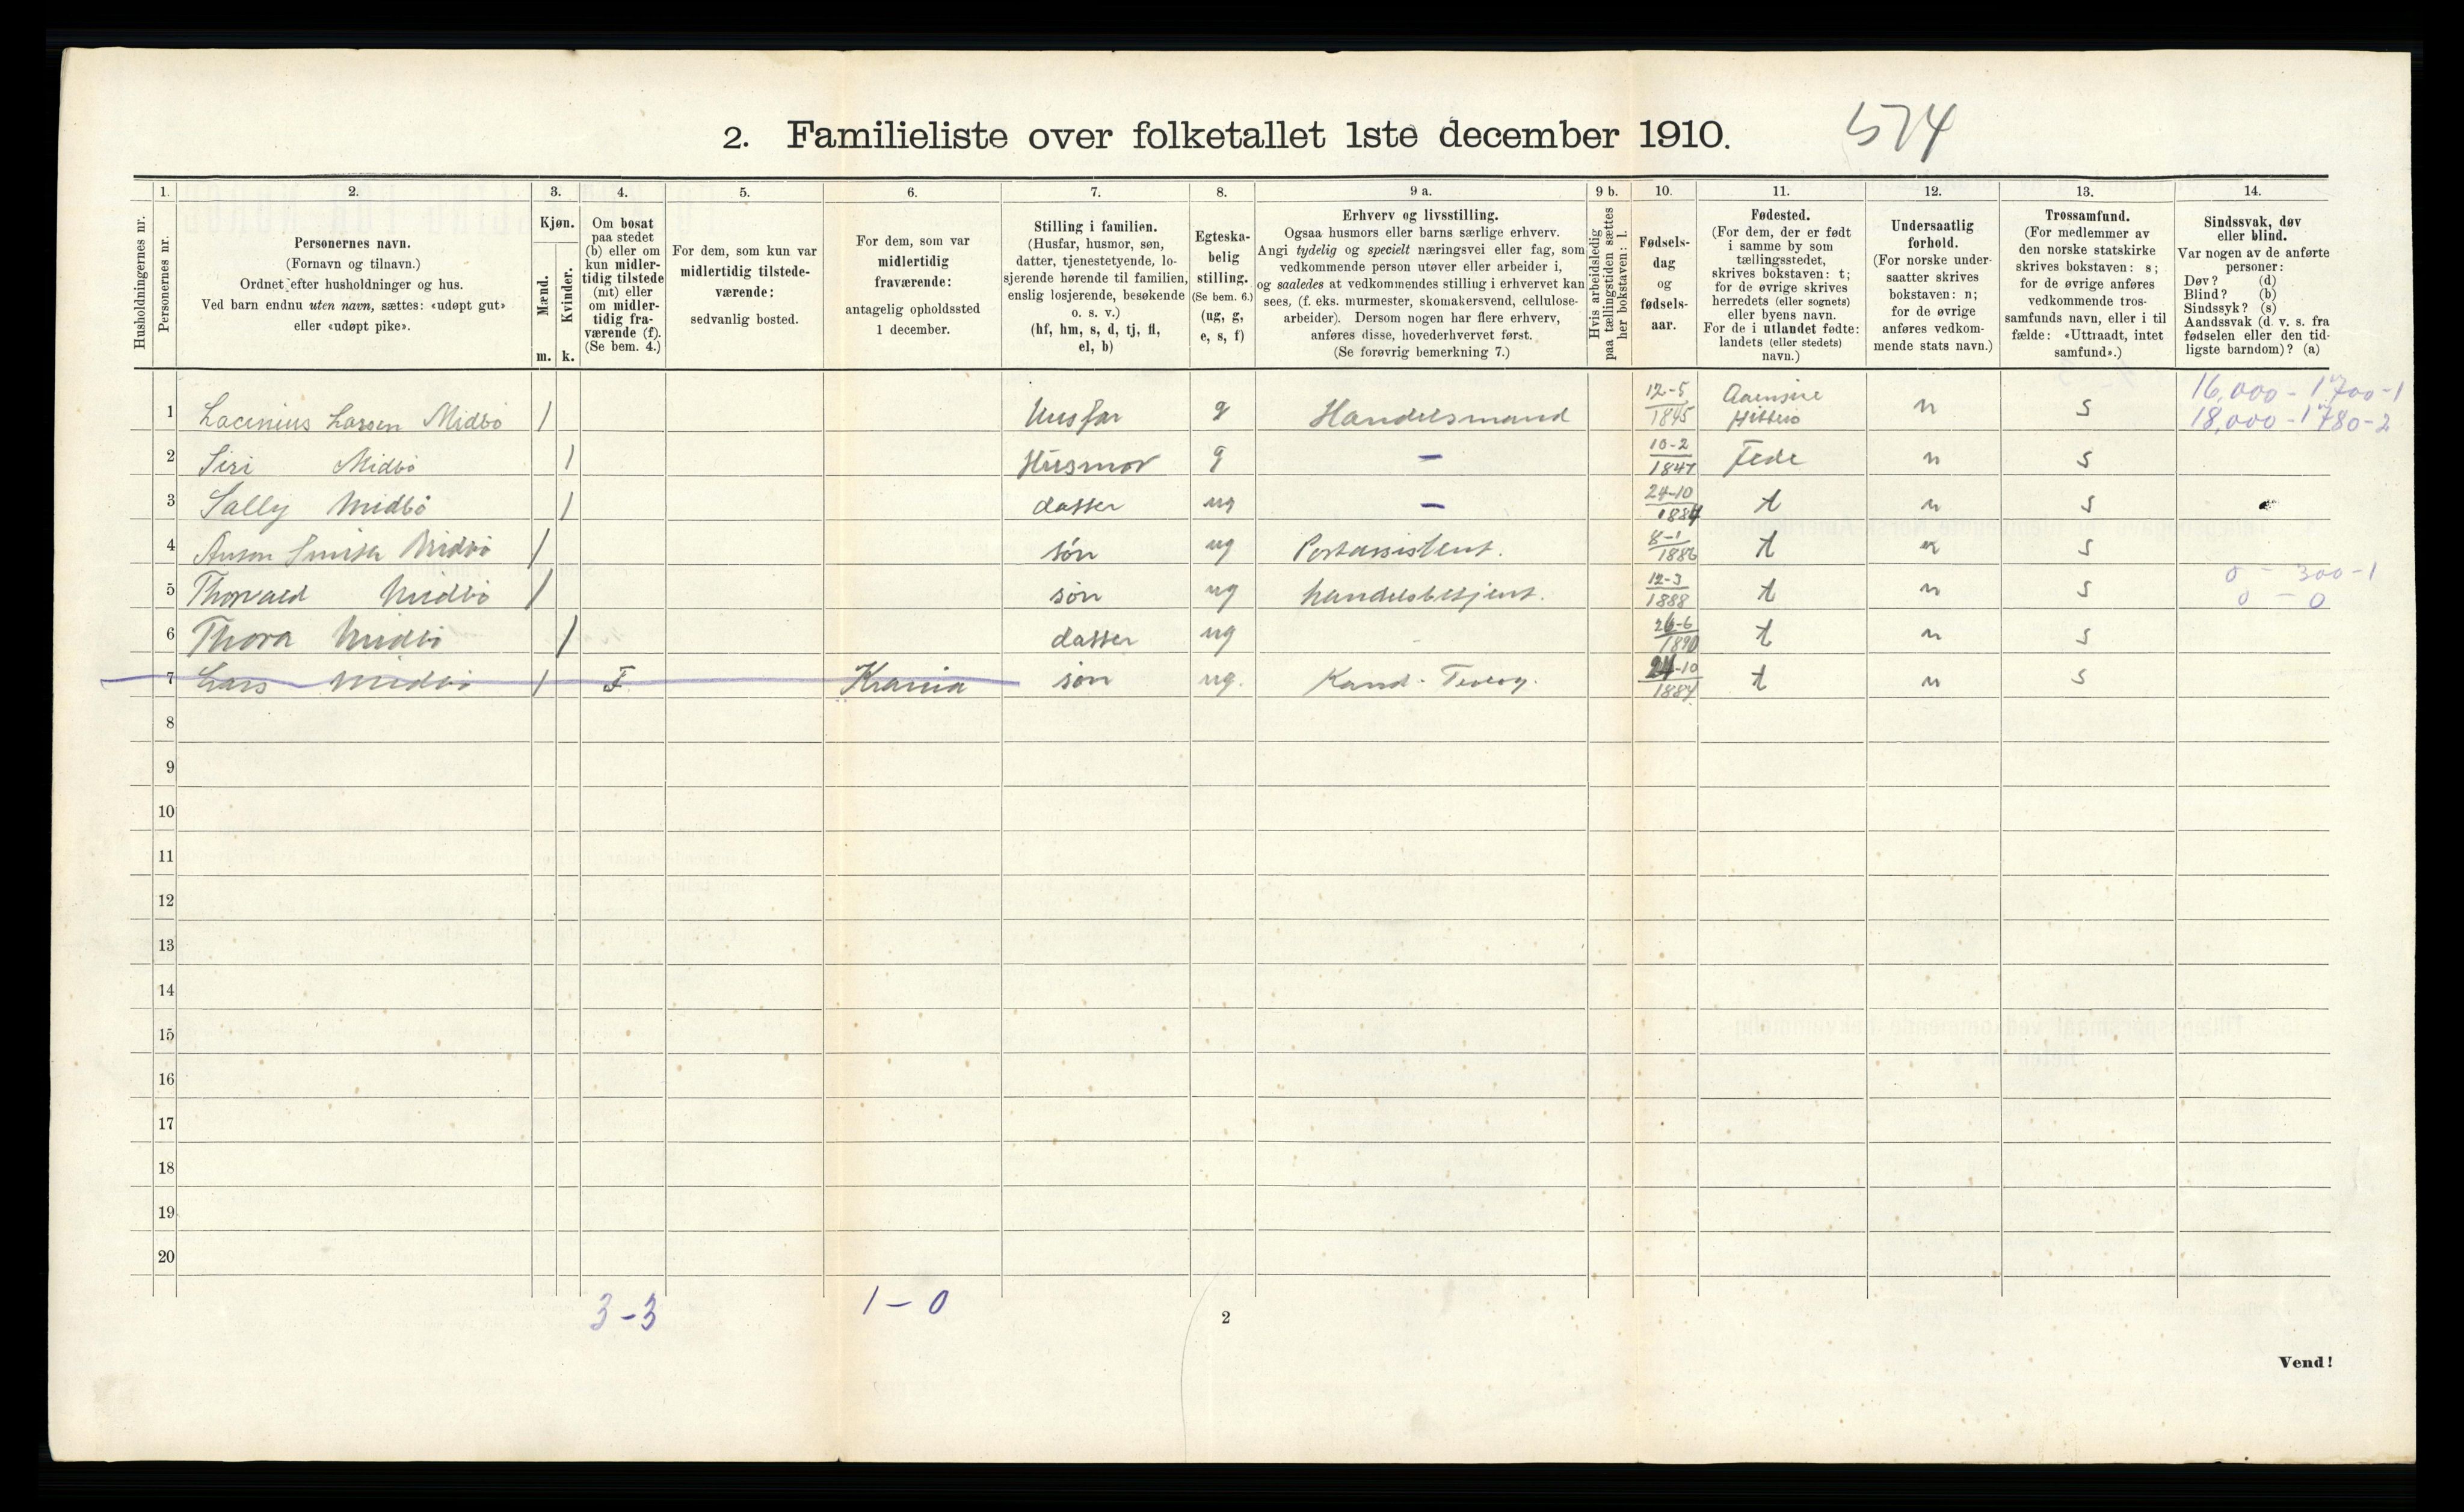 2. Familieliste over folketallet 1ste december 1910.
574
Husholdningernes nr.
1.
Personernes nr.
2.
Personernes navn.
(Fornavn og tilnavn.)
Ordnet efter husholdninger og hus.
Ved barn endnu uten navn, sættes: «udøpt gut»
eller «udøpt pike».
3.
Kjøn.
Mænd.
m.
Kvinder.
k.
4.
Om bosat
paa stedet
(b) eller om
kun midler-
tidig tilstede
(mt) eller
om midler-
tidig fra-
værende (f).
(Se bem. 4.)
5.
For dem, som kun var
midlertidig tilstede-
værende:
sedvanlig bosted.
6.
For dem, som var
midlertidig
fraværende:
antagelig opholdssted
1 december.
7.
Stilling i familien.
(Husfar, husmor, søn,
datter, tjenestetyende, lo-
sjerende hørende til familien,
enslig losjerende, besøkende
o. s. v.)
(hf, hm, s, d, tj, fl,
el, b)
8.
Egteska-
belig
stilling.
(Se bem. 6.)
(ug, g,
e, s, f)
9 a.
Erhverv og livsstilling.
Ogsaa husmors eller barns særlige erhverv.
Angi tydelig og specielt næringsvei eller fag, som
vedkommende person utøver eller arbeider i,
og saaledes at vedkommendes stilling i erhvervet kan
sees, (f. eks. murmester, skomakersvend, cellulose-
arbeider). Dersom nogen har flere erhverv,
anføres disse, hovederhvervet først.
(Se forøvrig bemerkning 7.)
9 b.
Hvis arbeidsledig
paa tællingstiden sættes
her bokstaven: l.
10.
Fødsels-
dag
og
fødsels-
aar.
11.
Fødested.
(For dem, der er født
i samme by som
tællingsstedet,
skrives bokstaven: t;
for de øvrige skrives
herredets (eller sognets)
eller byens navn.
For de i utlandet fødte:
landets (eller stedets)
navn.)
12.
Undersaatlig
forhold.
(For norske under-
saatter skrives
bokstaven: n;
for de øvrige
anføres vedkom-
mende stats navn.)
13.
Trossamfund.
(For medlemmer av
den norske statskirke
skrives bokstaven: s;
for de øvrige anføres
vedkommende tros-
samfunds navn, eller i til
fælde: «Uttraadt, intet
samfund».)
14.
Sindssvak, døv
eller blind.
Var nogen av de anførte
personer:
Døv? (d)
Blind? (b)
Sindssyk? (s)
Aandssvak (d. v. s. fra
fødselen eller den tid-
ligste barndom)? (a)
1 Lacinius Larsen Midbö / Husfar g Handelsmand 12-5 1845 Hitterö n s 16,000 - 1700-1
18,000 - 1780-2
2 Siri Midbö / Husmor g — 10-2 1847 Fede n s
3 Sally Midbö / datter ug — 24-10 1884 t n s
4 Midbö / són ug Postassistent. 8-1 1886 t n s
5 Thorvald Midbö / són ug handelsbetjent. 12-3 1888 t n s 0 - 300-1
0 - 0
6 Thora Midbö / datter ug 26-6 1890 t n s
7 Lars Midbö / F Krania són ug. Kand. 24-10 1884 t n s
8
9
10
11
12
13
14
15
16
17
18
19
20
3-3
1-0
2
Vend!